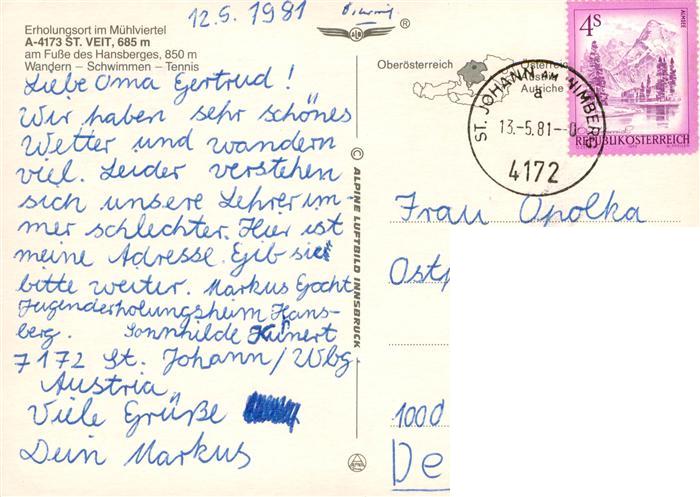 12.5. 1981
Erholungsort im Mühlviertel
A-4173 ST. VEIT, 685 m
am Fuße des Hansberges, 850 m
Wandern – Schwimmen – Tennis
Liebe Oma Gertrud!
Wir haben sehr schönes
Wetter und wandern
viel. Leider verstehen
sich unsere Lehrer im-
mer schlechter. Hier ist
meine Adresse. Gib sie
bitte weiter. Markus
Jugenderholungsheim Hans-
berg. Sonnhilde
7172 St. Johann/Wbg
Austria
Viele Grüße
Dein Markus
© ALPINE LUFTBILD INNSBRUCK
Oberösterreich
Österreich
Autriche
ST. JOHANN AM WIMBERG
a
13.-5.81--0
4172
4S
ALMSEE
REPUBLIK ÖSTERREICH
Frau Opolka
Ostp
1000
De